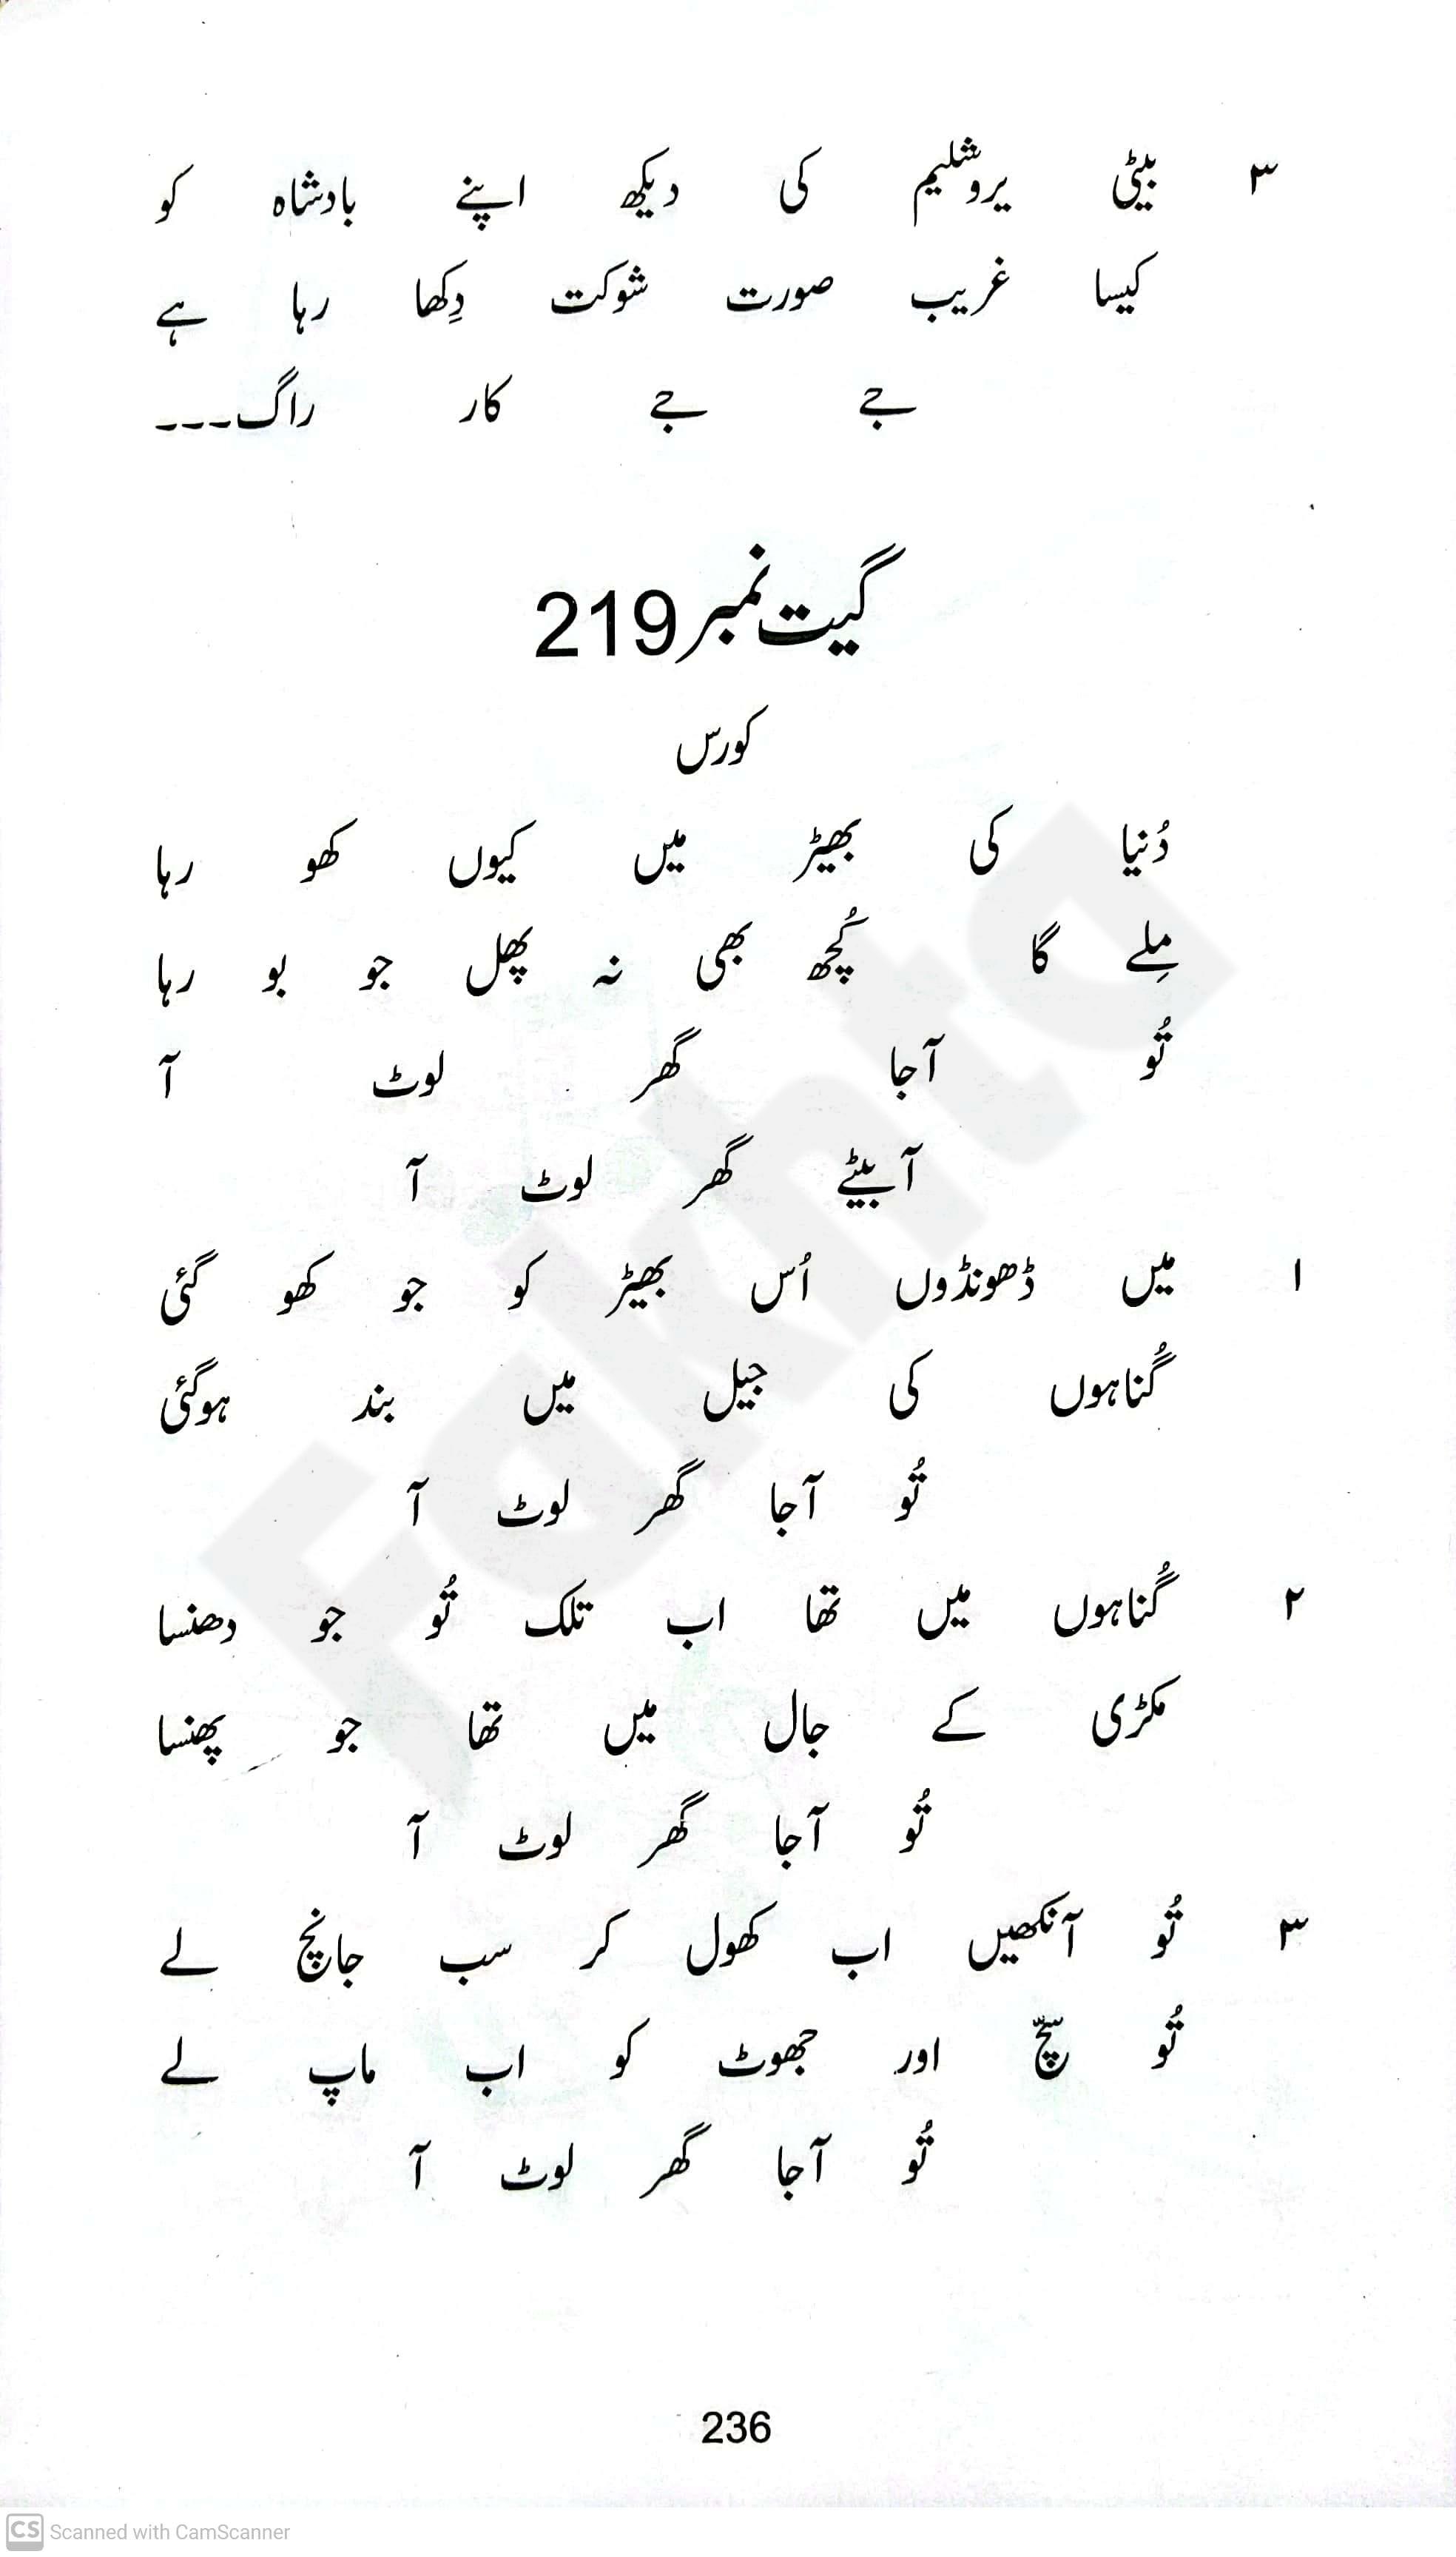 ۳ بیٹی یروشلیم کی دیکھ اپنے بادشاہ کو
کیسا غریب صورت شوکت دِکھا رہا ہے
جے جے کار راگ۔۔۔
گیت نمبر 219
کورس
دُنیا کی بھیڑ میں کیوں کھو رہا
مِلے گا کُچھ بھی نہ پھل جو بو رہا
تُو آجا گھر لوٹ آ
آ بیٹے گھر لوٹ آ
۱ میں ڈھونڈوں اُس بھیڑ کو جو کھو گئی
گُناہوں کی جیل میں بند ہوگئی
تُو آجا گھر لوٹ آ
۲ گُناہوں میں تھا اب تلک تُو جو دھنسا
مکڑی کے جال میں تھا جو پھنسا
تُو آجا گھر لوٹ آ
۳ تُو آنکھیں اب کھول کر سب جانچ لے
تُو سچّ اور جھوٹ کو اب ماپ لے
تُو آجا گھر لوٹ آ
236
Fakhta
CS Scanned with CamScanner